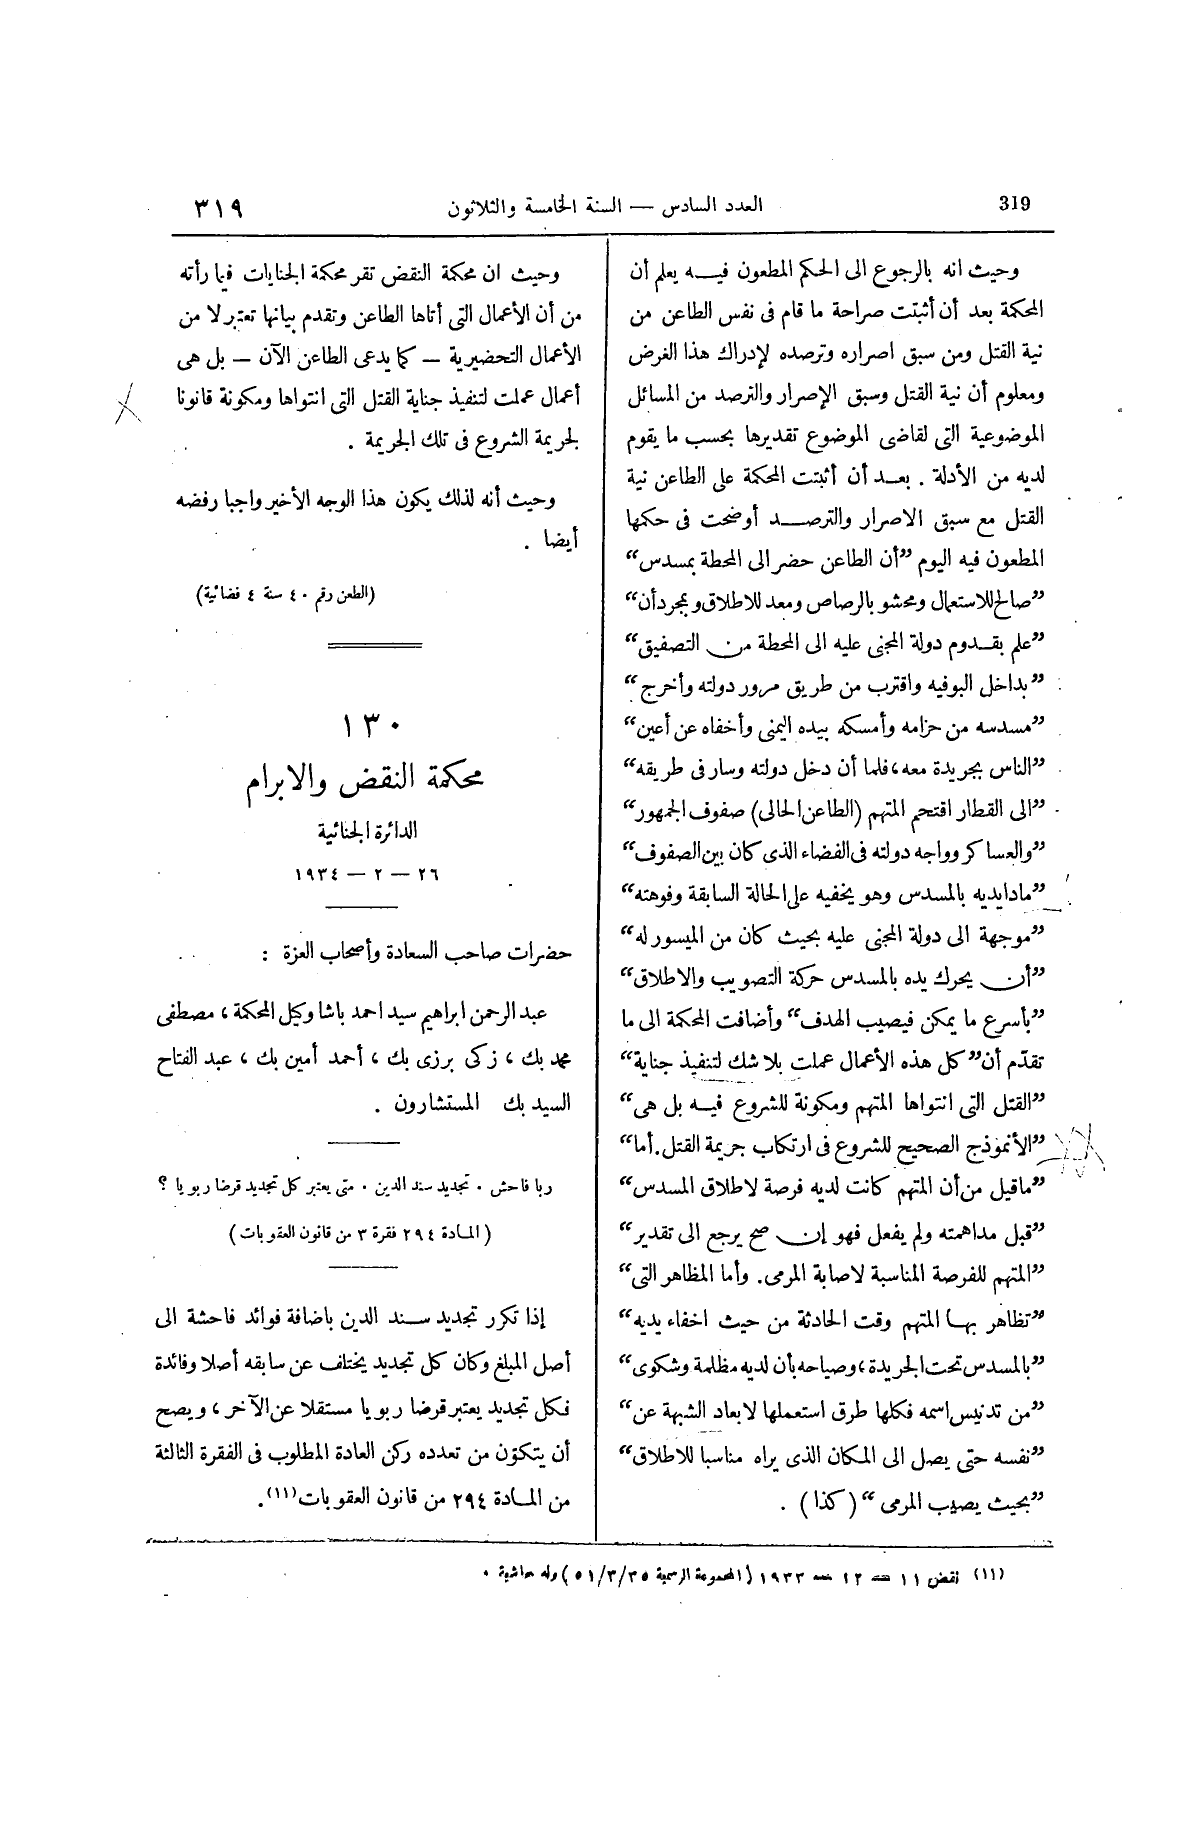 319
العدد السادس — السنة الخامسة والثلاثون
٣١٩
وحيث انه بالرجوع الى الحكم المطعون فيــه يعلم أن
المحكمة بعد أن أثبتت صراحة ما قام فى نفس الطاعن من
نية القتل ومن سبق اصراره وترصده لإدراك هذا الغرض
ومعلوم أن نية القتل وسبق الإصرار والترصد من المسائل
الموضوعية التى لقاضى الموضوع تقديرها بحسب ما يقوم
لديه من الأدلة . بعــد أن أثبتت المحكمة على الطاعن نية
القتل مع سبق الاصرار والترصــد أوضحت فى حكمها
المطعون فيه اليوم ”أن الطاعن حضر الى المحطة بمسدس“
”صالح للاستعمال ومحشو بالرصاص ومعد للاطلاق وبمجرد أن“
”علم بقــدوم دولة المجنى عليه الى المحطة من التصفيق“
”بداخل البوفيه واقترب من طريق مرور دولته وأخرج“
”مسدسه من حزامه وأمسكه بيده اليمنى وأخفاه عن أعين“
”الناس بجريدة معه، فلما أن دخل دولته وسار فى طريقه“
”الى القطار اقتحم المتهم (الطاعن الحالى) صفوف الجمهور“
”والعساكر وواجه دولته فى الفضاء الذى كان بين الصفوف“
”مادا يديه بالمسدس وهو يخفيه على الحالة السابقة وفوهته“
”موجهة الى دولة المجنى عليه بحيث كان من الميسور له“
”أن يحرك يده بالمسدس حركة التصويب والاطلاق“
”بأسرع ما يمكن فيصيب الهدف“ وأضافت المحكمة الى ما
تقدّم أن ”كل هذه الأعمال عملت بلا شك لتنفيذ جناية“
”القتل التى انتواها المتهم ومكونة للشروع فيــه بل هى“
”الأنموذج الصحيح للشروع فى ارتكاب جريمة القتل. أما“
”ما قيل من أن المتهم كانت لديه فرصة لاطلاق المسدس“
”قبل مداهمته ولم يفعل فهو إن صح يرجع الى تقدير“
”المتهم للفرصة المناسبة لاصابة المرمى. وأما المظاهر التى“
”تظاهر بهــا المتهم وقت الحادثة من حيث اخفاء يديه“
”بالمسدس تحت الجريدة، وصياحه بأن لديه مظلمة وشكوى“
”من تدنيس اسمه فكلها طرق استعملها لابعاد الشبهة عن“
”نفسه حتى يصل الى المكان الذى يراه مناسبا للاطلاق“
”بحيث يصيب المرمى“ (كذا) .
وحيث ان محكمة النقض تقر محكمة الجنايات فيما رأته
من أن الأعمال التى أتاها الطاعن وتقدم بيانها تعتبر لا من
الأعمال التحضيرية — كما يدعى الطاعن الآن — بل هى
أعمال عملت لتنفيذ جناية القتل التى انتواها ومكونة قانونا
لجريمة الشروع فى تلك الجريمة .
وحيث أنه لذلك يكون هذا الوجه الأخير واجبا رفضه
أيضا .
(الطعن رقم ٤٠ سنة ٤ قضائية)
١٣٠
محكمة النقض والابرام
الدائرة الجنائية
٢٦ — ٢ — ١٩٣٤
حضرات صاحب السعادة وأصحاب العزة :
عبد الرحمن ابراهيم سيد احمد باشا وكيل المحكمة ، مصطفى
محمد بك ، زكى برزى بك ، أحمد أمين بك ، عبد الفتاح
السيد بك المستشارون .
ربا فاحش . تجديد سند الدين . متى يعتبر كل تجديد قرضا ربويا ؟
(المــادة ٢٩٤ فقرة ٣ من قانون العقوبات)
إذا تكرر تجديد ســند الدين باضافة فوائد فاحشة الى
أصل المبلغ وكان كل تجديد يختلف عن سابقه أصلا وفائدة
فكل تجديد يعتبر قرضا ربويا مستقلا عن الآخر ، ويصح
أن يتكوّن من تعدده ركن العادة المطلوب فى الفقرة الثالثة
من المــادة ٢٩٤ من قانون العقوبات(١١).
(١١) نقض ١١ — ١٢ — ١٩٣٣ (المجموعة الرسمية ٥١/٣/٣٥) وله حاشية .